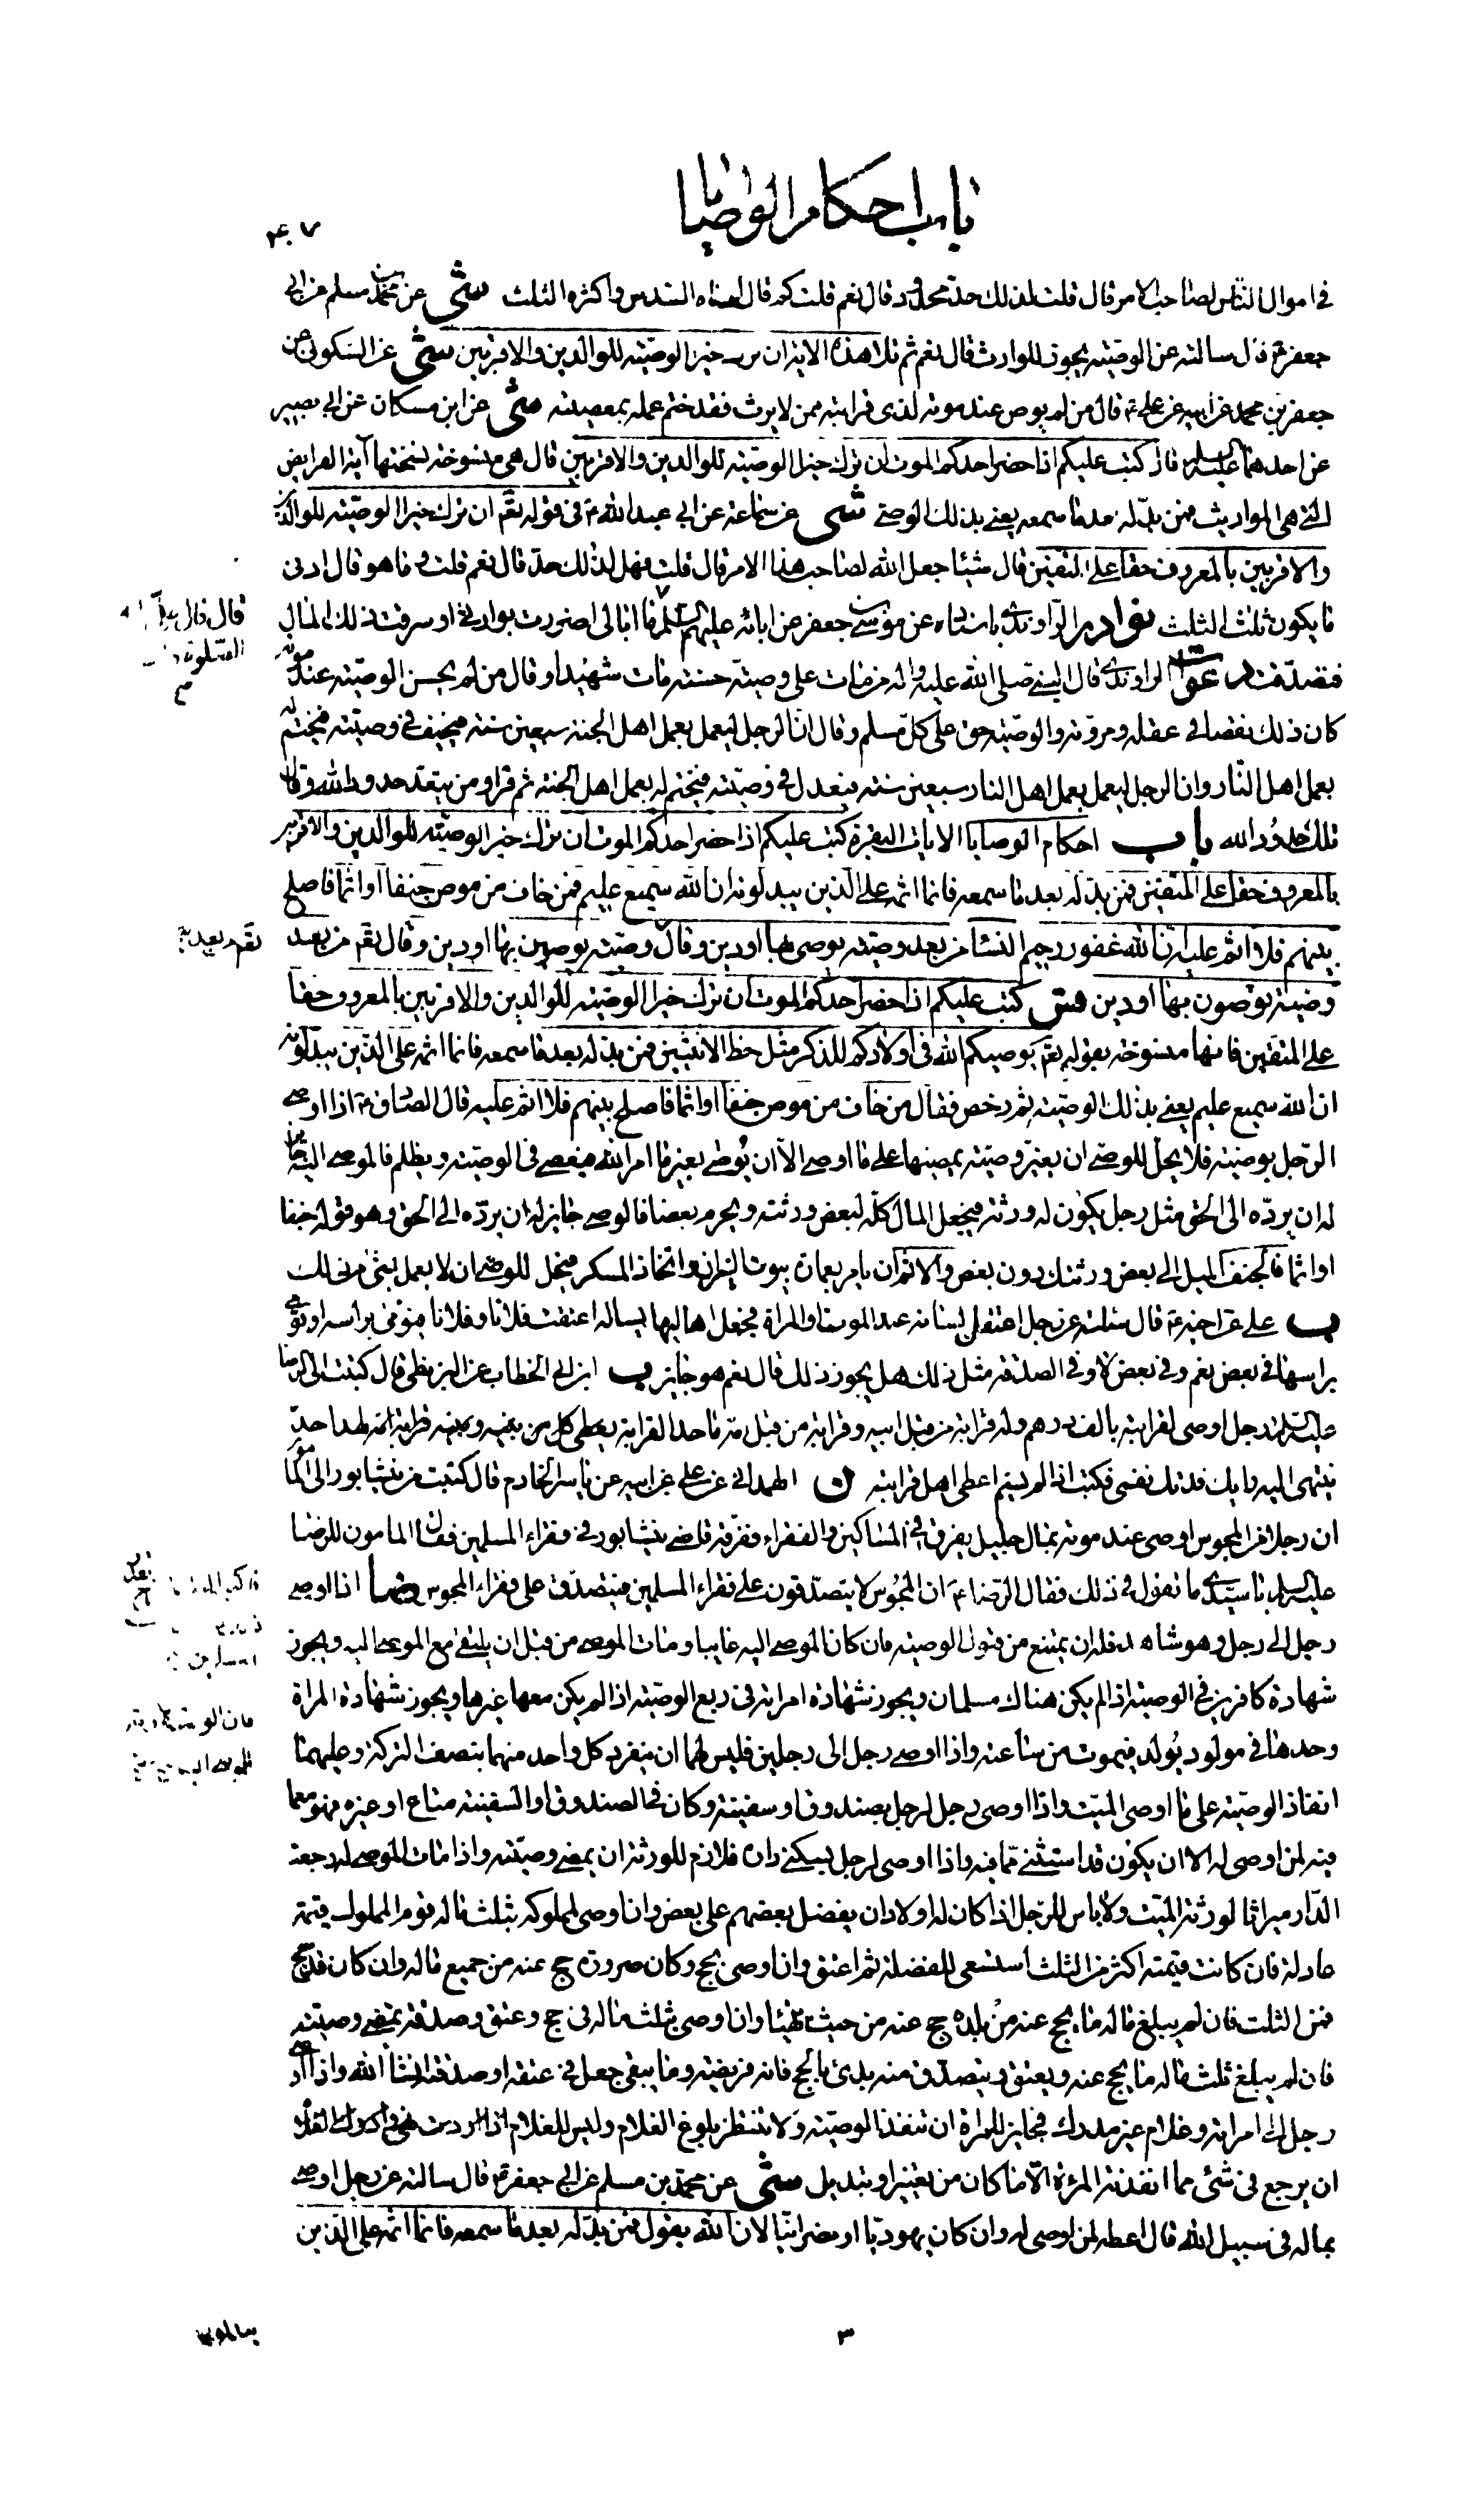 باب احكام الوصايا
۴۰۷
في اموال الناس لصاحب الامر قال قلت لذلك حد محدود قال نعم قلت كم قال ادناه السدس واكثره الثلث شى عن محمد بن مسلم عن ابي
جعفر ع قال سالته عن الوصية يجوز للوارث قال نعم ثم تلا هذه الاية ان ترك خيرا الوصية للوالدين والاقربين شى عن السكوني عن
جعفر بن محمد عن ابيه عن علي ع قال من لم يوص عند موته لذى قرابته ممن لا يرث فقد ختم عمله بمعصيته شى عن ابن مسكان عن ابي بصير
عن احدهما عليه السلم قال كتب عليكم اذا حضر احدكم الموت ان ترك خيرا الوصية للوالدين والاقربين قال هي منسوخة نسختها آية الفرايض
التي هي المواريث فمن بدله بعد ما سمعه يعني بذلك الوصي شى عن سماعة عن ابي عبد الله ع في قوله تعم ان ترك خيرا الوصية للوالدين
والاقربين بالمعروف حقا على المتقين قال شيئا جعل الله لصاحب هذا الامر قال قلت فهل لذلك حد قال نعم قلت وما هو قال ادنى
ما يكون ثلث الثلث نوادر الراوندي باسناده عن موسى بن جعفر عن ابائه عليهم السلم ما ابالى اضررت بوارثي او سرقت ذلك المال
قال قال علي
الصلوة
م
فتصدقت به عنق الراوندي قال النبي صلى الله عليه واله من مات على وصية حسنة مات شهيدا وقال من لم يحسن الوصية عند موته
كان ذلك نقصا في عقله ومروته والوصية حق على كل مسلم وقال ان الرجل ليعمل بعمل اهل الجنة سبعين سنة فيحيف في وصيته فيختم له
بعمل اهل النار وان الرجل ليعمل بعمل اهل النار سبعين سنة فيعدل في وصيته فيختم له بعمل اهل الجنة ثم قرا ومن يتعد حدود الله وقال
تلك حدود الله باب احكام الوصايا الايات البقرة كتب عليكم اذا حضر احدكم الموت ان ترك خيرا الوصية للوالدين والاقربين
بالمعروف حقا على المتقين فمن بدله بعد ما سمعه فانما اثمه على الذين يبدلونه ان الله سميع عليم فمن خاف من موص جنفا او اثما فاصلح
بينهم فلا اثم عليه ان الله غفور رحيم النساء من بعد وصية يوصى بها او دين وقال وصية يوصين بها او دين وقال تعم من بعد
وصية توصون بها او دين فس كتب عليكم اذا حضر احدكم الموت ان ترك خيرا الوصية للوالدين والاقربين بالمعروف حقا
على المتقين فانها منسوخة بقوله تعم يوصيكم الله في اولادكم للذكر مثل حظ الانثيين فمن بدله بعد ما سمعه فانما اثمه على الذين يبدلونه
ان الله سميع عليم يعني بذلك الوصية ثم رخص فقال من خاف من موص جنفا او اثما فاصلح بينهم فلا اثم عليه قال الصادق ع اذا اوصى
الرجل بوصيته فلا يحل للوصي ان يغير وصيته يمضيها على ما اوصى الا ان يوصي بغير ما امر الله فيعصي في الوصية ويظلم فالموصى اليه جايز
له ان يرده الى الحق مثل رجل يكون له ورثة فيجعل المال كله لبعض ورثته ويحرم بعضا فالوصي جايز له ان يرده الى الحق وهو قوله جنفا
او اثما فالجنف الميل الى بعض ورثتك دون بعض والاثم ان يامر بعمارة بيوت النيران واتخاذ المسكر فيحل للوصي ان لا يعمل بشئ من ذلك
ب علي عن اخيه ع قال سئلته عن رجل اعتقل لسانه عند الموت او المراة فجعل اهاليها يساله اعتقت فلانا وفلانا فيومى براسه او تومى
براسها في بعض نعم وفي بعض لا وفي الصدقة مثل ذلك هل يجوز ذلك قال نعم هو جايز ب ابن ابي الخطاب عن البزنطي قال كتبت الى الرضا
عليه السلم رجل اوصى لقرابته بالف درهم وله قرابة من قبل ابيه وقرابة من قبل امه ما حد القرابة يعطى كل من بينه وبينه قرابة ام لهذا حد
ينتهى اليه رايك فدتك نفسى فكتب اذا لم يسم اعطى اهل قرابته ن الهمداني عن علي عن ابيه عن ياسر الخادم قال كتبت من نيشابور الى المامون
ان رجلا من المجوس اوصى عند موته بمال جليل يفرق في المساكين والفقراء ففرقه قاضي نيشابور في فقراء المسلمين فقال المامون للرضا
عليه السلم يا سيدي ما تقول في ذلك فقال الرضا ع ان المجوس لا يتصدقون على فقراء المسلمين فيتصدق على فقراء المجوس ضا اذا اوصى
رجل الى رجل وهو شاهد فله ان يمتنع من قبول الوصية فان كان الموصى اليه غايبا ومات الموصى من قبل ان يلتقي مع الموصى اليه ويجوز
شهادة كافرين في الوصية اذا لم يكن هناك مسلمان ويجوز شهادة امراة في ربع الوصية اذا لم يكن معها غيرها ويجوز شهادة المراة
وحدها في مولود يولد فيموت من ساعته واذا اوصى رجل الى رجلين فليس لهما ان ينفرد كل واحد منهما بنصف التركة وعليهما
انفاذ الوصية على ما اوصى الميت واذا اوصى رجل لرجل بصندوق او سفينة وكان في الصندوق او السفينة متاع او غيره فهو مع ما
فيه لمن اوصى له الا ان يكون قد استثنى مما فيه واذا اوصى لرجل بسكنى داره فلازم للورثة ان يمضي وصيته واذا مات الموصى له رجعت
الدار ميراثا لورثة الميت ولا باس للرجل اذا كان له اولاد ان يفضل بعضهم على بعض وان اوصى لمملوكه بثلث ماله قوم المملوك قيمة
عادلة فان كانت قيمته اكثر من الثلث استسعى للفضلة ثم اعتق وان اوصى بحج وكان صرورة حج عنه من جميع ماله وان كان قد حج
فمن الثلث فان لم يبلغ ماله ما يحج عنه من بلده حج عنه من حيث تهيئا وان اوصى بثلث ماله في حج وعتق وصدقة تمضي وصيته
فان لم يبلغ ثلث ماله ما يحج عنه ويعتق ويتصدق منه بدئ بالحج فانه فريضة وما يبقى جعل في عتقه او صدقة انشاء الله واذا اوصى
رجل الى امراته وغلام غير مدرك فجايز للمراة ان تنفذ الوصية ولا تنتظر بلوغ الغلام وليس للغلام اذا
ان يرجع في شئ مما انفذته المرءة الا ما كان من تغيير او تبديل شى عن محمد بن مسلم عن ابي جعفر ع قال سالته عن رجل اوصى
بماله في سبيل الله قال اعطه لمن اوصى له وان كان يهوديا او نصرانيا لان الله يقول فمن بدله بعد ما سمعه فانما اثمه على الذين
يبدلونه
۳